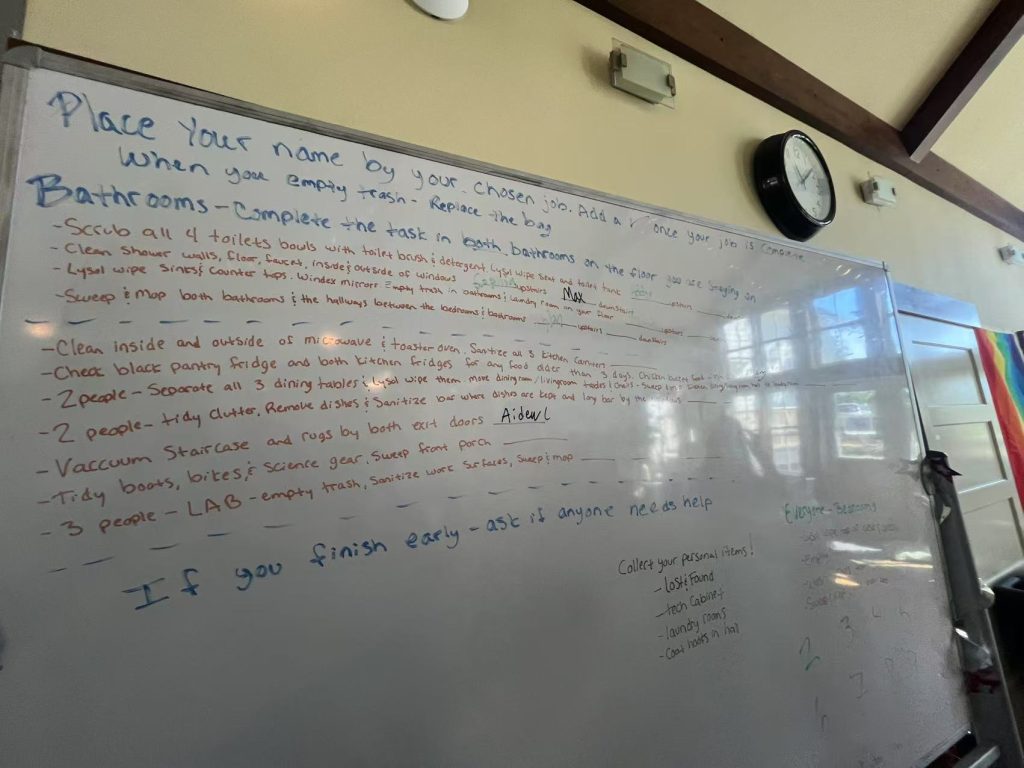 Place Your name by your chosen job. Add a ✓ once your job is complete
When you empty trash - Replace the bag
Bathrooms - Complete the task in both bathrooms on the floor you are staying on
- Scrub all 4 toilets bowls with toilet brush & detergent. Lysol wipe seat and toilet tank upstairs
- Clean shower walls, floor, faucet, inside & outside of windows upstairs Max downstairs
- Lysol wipe sinks & counter tops. Windex mirrors. Empty trash in bathrooms & laundry room on your floor upstairs
- Sweep & Mop both bathrooms & the hallways between the bedrooms & bathrooms upstairs downstairs
- Clean inside and outside of microwave & toaster oven. Sanitize all 3 kitchen counters
- Check black pantry fridge and both kitchen fridges for any food older than 3 days.
- 2 people - Separate all 3 dining tables & Lysol wipe them. Move dining room/living room tables & chairs - Sweep
- 2 people - tidy clutter, Remove dishes & Sanitize bar where dishes are kept and long bar by the windows
- Vaccuum Staircase and rugs by both exit doors Aidan L
- Tidy boots, bikes, & Science gear. Sweep front porch
- 3 people - LAB - empty trash, Sanitize work surfaces, Sweep & mop
If you finish early - ask if anyone needs help
Collect your personal items!
- Lost & Found
- tech Cabinet
- laundry rooms
- Coat hooks in hall
Everyone - Bedrooms
2